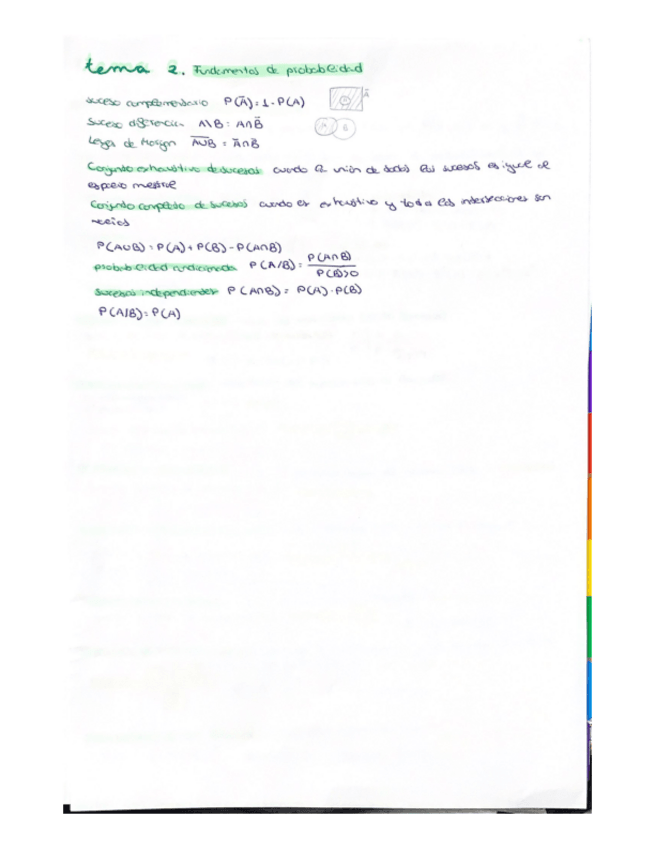 tema 2. Fundamentos de probabilidad
suceso complementario P(Ā)=1-P(A) Ā
suceso diferencia A\B = A∩B̄
Leyes de Morgan A̅U̅B̅ = Ā∩B̄
Conjunto exhaustivo de sucesos cuando la unión de todos los sucesos es igual al
espacio muestral
Conjunto completo de sucesos cuando es exhaustivo y todas las intersecciones son
vacías
P(AUB)=P(A)+P(B)-P(A∩B)
probabilidad condicionada P(A/B)= P(A∩B)
P(B)>0
sucesos independientes P(A∩B)= P(A)·P(B)
P(A/B)=P(A)